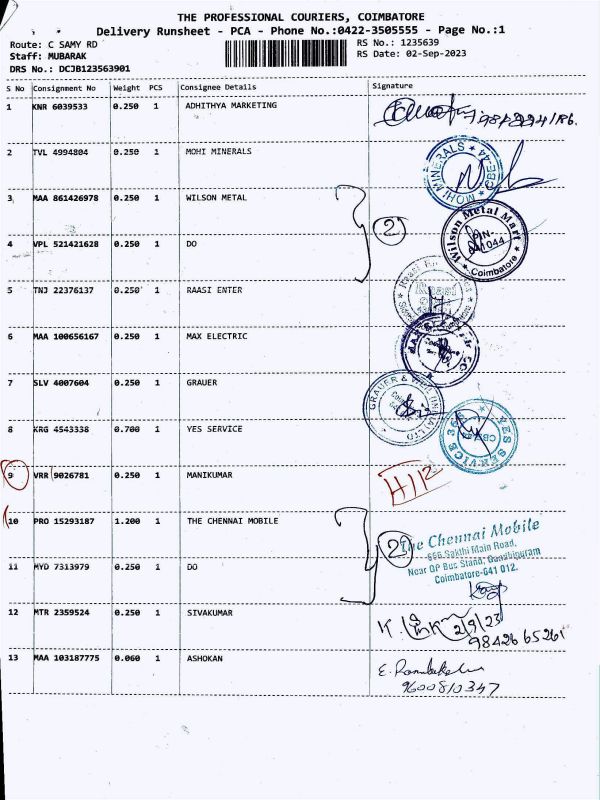 THE PROFESSIONAL COURIERS, COIMBATORE
Delivery Runsheet - PCA - Phone No.:0422-3505555 - Page No.:1
Route: C SAMY RD
RS No.: 1235639
Staff: MUBARAK
RS Date: 02-Sep-2023
DRS No.: DCJB123563901
S No Consignment No Weight PCS Consignee Details Signature
1 KNR 6039533 0.250 1 ADHITHYA MARKETING
2 TVL 4994804 0.250 1 MOHI MINERALS
MOHI MINERALS
3 MAA 861426978 0.250 1 WILSON METAL
2
Wilson Metal Mart
PIN-
641044
Coimbatore
4 VPL 521421628 0.250 1 DO
5 TNJ 22376137 0.250 1 RAASI ENTER
Raasi
6 MAA 100656167 0.250 1 MAX ELECTRIC
7 SLV 4007604 0.250 1 GRAUER
GRAUER &
8 KRG 4543338 0.700 1 YES SERVICE
YES SERVICE 360
9 VRR 9026781 0.250 1 MANIKUMAR
10 PRO 15293187 1.200 1 THE CHENNAI MOBILE
2
The Chennai Mobile
666, Sakthi Main Road,
Near GP Bus Stand, Gandhipuram
Coimbatore-641 012.
11 MYD 7313979 0.250 1 DO
12 MTR 2359524 0.250 1 SIVAKUMAR
2/9/23
98426 65261
13 MAA 103187775 0.060 1 ASHOKAN
9600810347